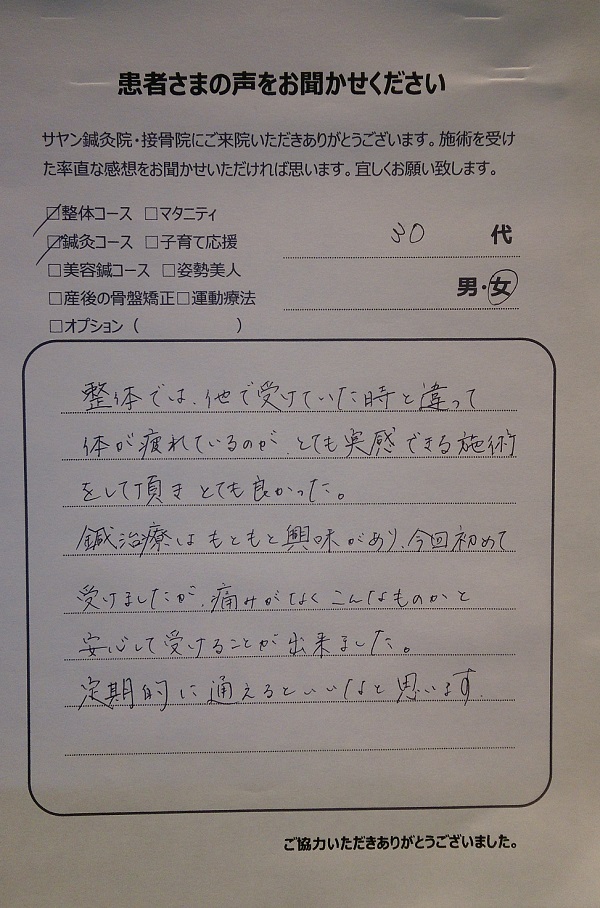 患者さまの声をお聞かせください
サヤン鍼灸院・接骨院にご来院いただきありがとうございます。施術を受け
た率直な感想をお聞かせいただければ思います。宜しくお願い致します。
☑整体コース □マタニティ
☑鍼灸コース □子育て応援
□美容鍼コース □姿勢美人
□産後の骨盤矯正□運動療法
□オプション（ ）
30 代
男・女
整体では、他で受けていた時と違って
体が疲れているのが、とても実感できる施術
をして頂き とても良かった。
鍼治療はもともと興味があり、今回初めて
受けましたが、痛みがなくこんなものかと
安心して受けることが出来ました。
定期的に通えるといいなと思います。
ご協力いただきありがとうございました。